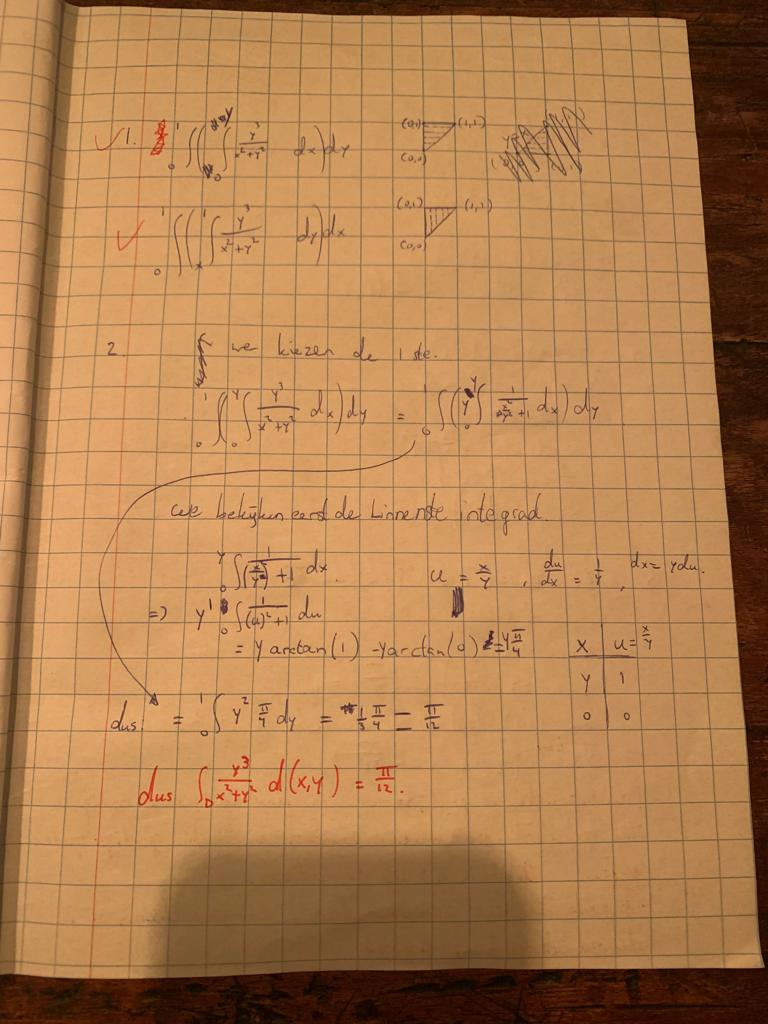 ✓ 1. ₀∫¹ ( ₀∫^y y³/(x²+y²) dx ) dy (0,1) (1,1) (0,0)
✓ ₀∫¹ ( ₓ∫¹ y³/(x²+y²) dy ) dx (0,1) (1,1) (0,0)
2. we kiezen de 1 ste.
₀∫¹ ( ₀∫^y y³/(x²+y²) dx ) dy = ₀∫¹ ( y ₀∫^y 1/(x²/y²+1) dx ) dy
we bekijken eerst de binnenste integraal.
₀∫^y 1/((x/y)²+1) dx. u = x/y , du/dx = 1/y , dx = y du.
=> y ₀∫¹ 1/((u)²+1) du
= y arctan(1) - y arctan(0) = y π/4
x u = x/y
y 1
0 0
dus: = ₀∫¹ y² π/4 dy = 1/3 π/4 = π/12
dus ∫_D y³/(x²+y²) d(x,y) = π/12.